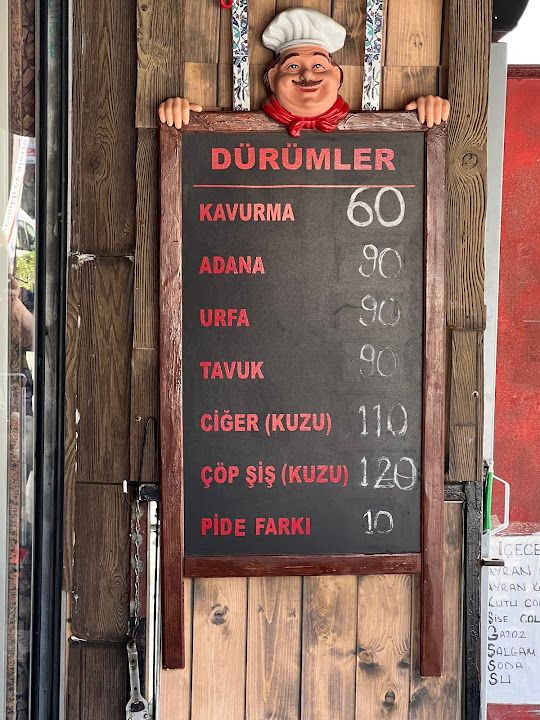 DÜRÜMLER
KAVURMA 60
ADANA 90
URFA 90
TAVUK 90
CİĞER (KUZU) 110
ÇÖP ŞİŞ (KUZU) 120
PİDE FARKI 10
İÇECE
AYRAN
AYRAN K
KUTU CO
ŞİŞE COL
GAZOZ
ŞALGAM
SODA
SU